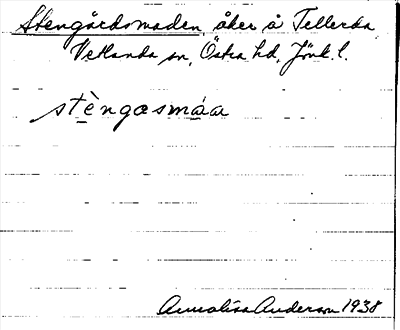 Stengårdsmaden, åker å Tellerba
Vetlanda sn, Östra hd, Jönk. l.
stèngasmáa
Annalisa Anderson 1938